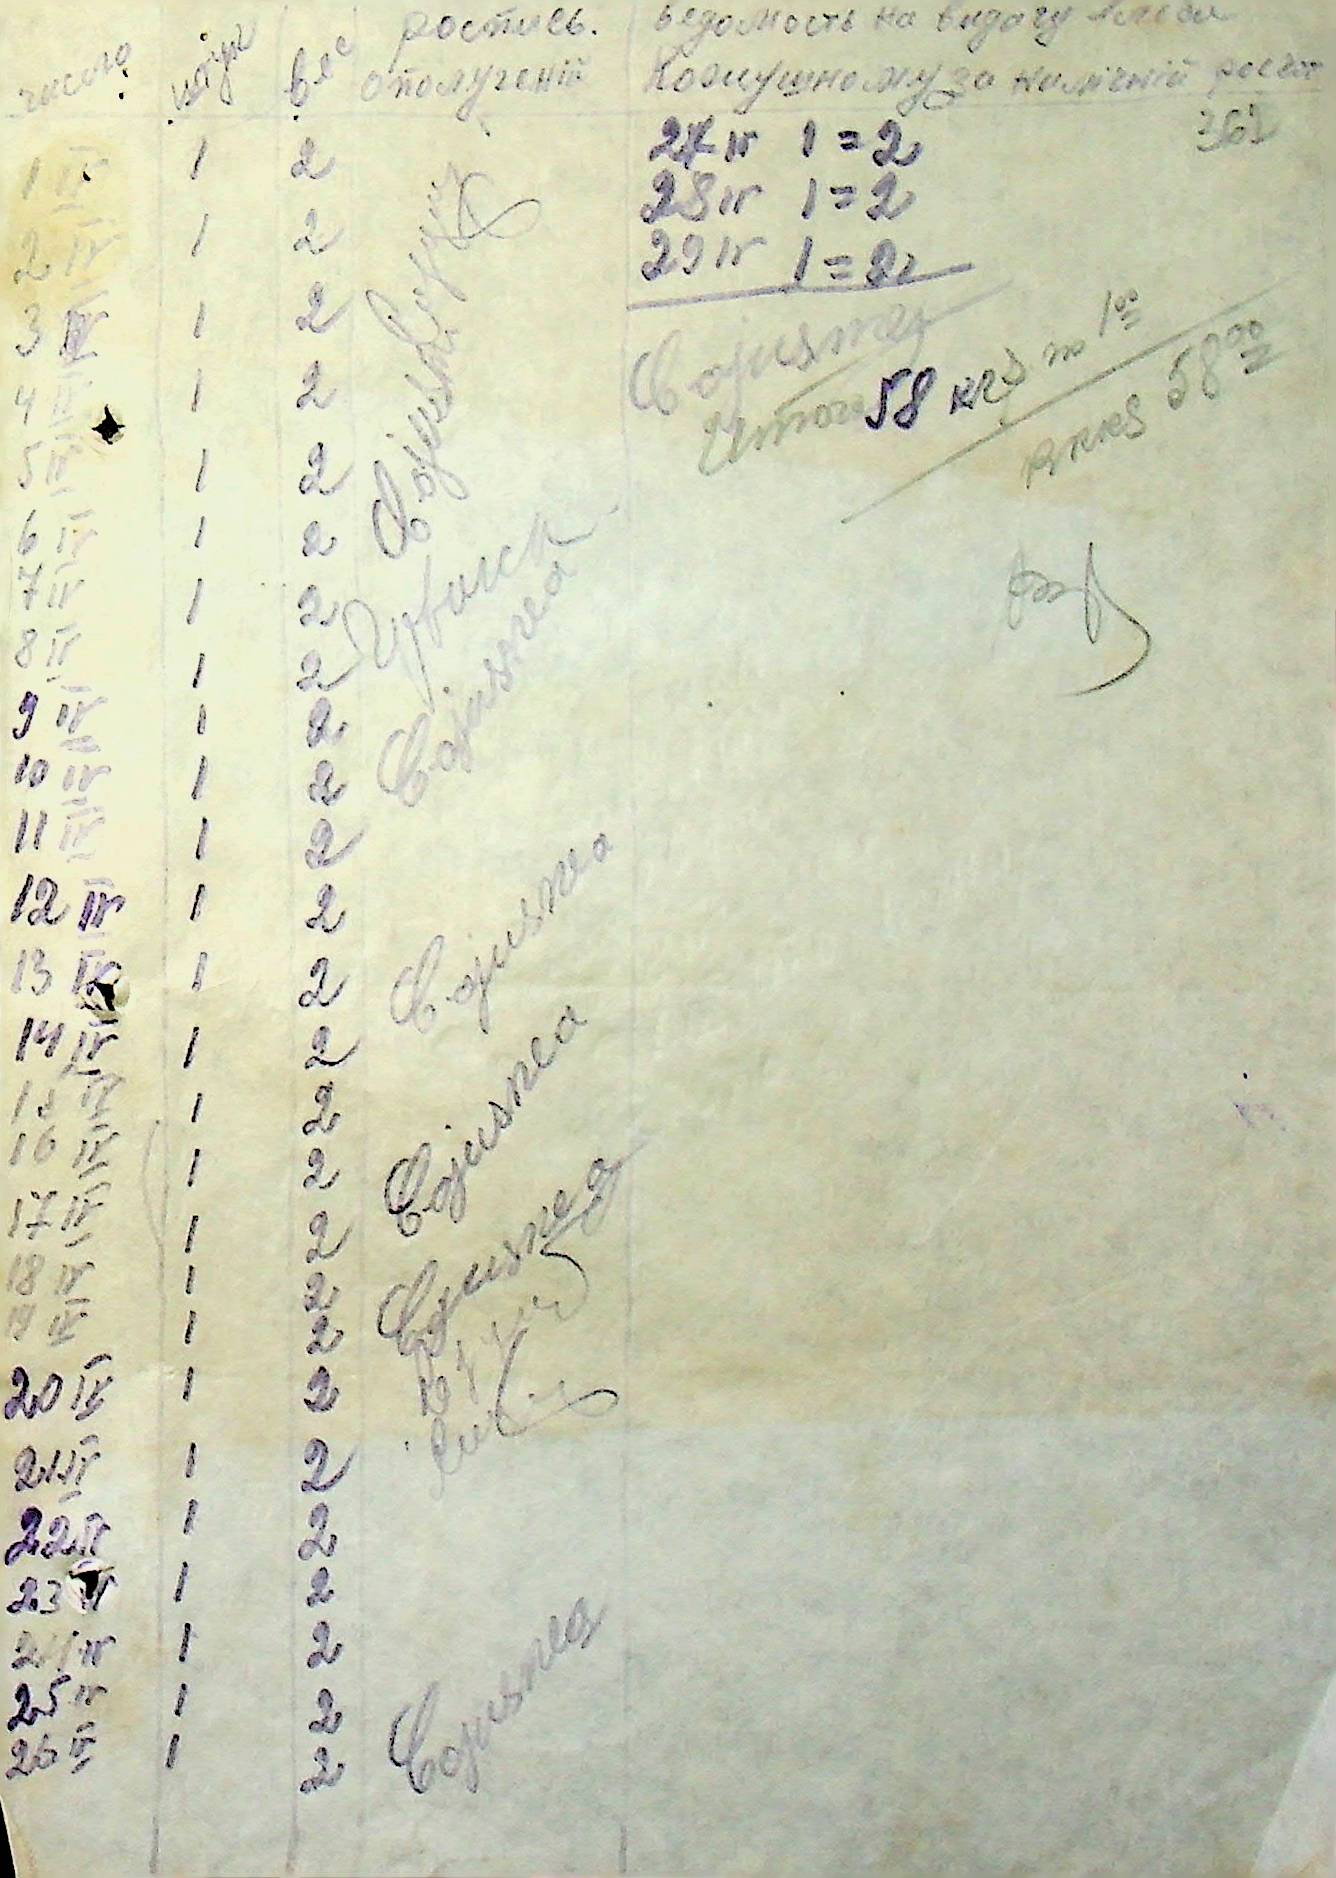 число штук вес роспись. ведомость на видачу хлеба
ополучений Кожушному за наличний росчот
361
1 IV 1 2
2 IV 1 2
3 IV 1 2
4 IV 1 2
5 IV 1 2
6 IV 1 2
7 IV 1 2
8 IV 1 2
9 IV 1 2
10 IV 1 2
11 IV 1 2
12 IV 1 2
13 IV 1 2
14 IV 1 2
15 IV 1 2
16 IV 1 2
17 IV 1 2
18 IV 1 2
19 IV 1 2
20 IV 1 2
21 IV 1 2
22 IV 1 2
23 IV 1 2
24 IV 1 2
25 IV 1 2
26 IV 1 2
Cojusnea
Cojusnea
Cojusnea
Cojusnea
Cojusnea
Cojusnea
27 IV 1 = 2
28 IV 1 = 2
29 IV 1 = 2
Cojusnea
Итого 58 кгз по 1 00
58 00